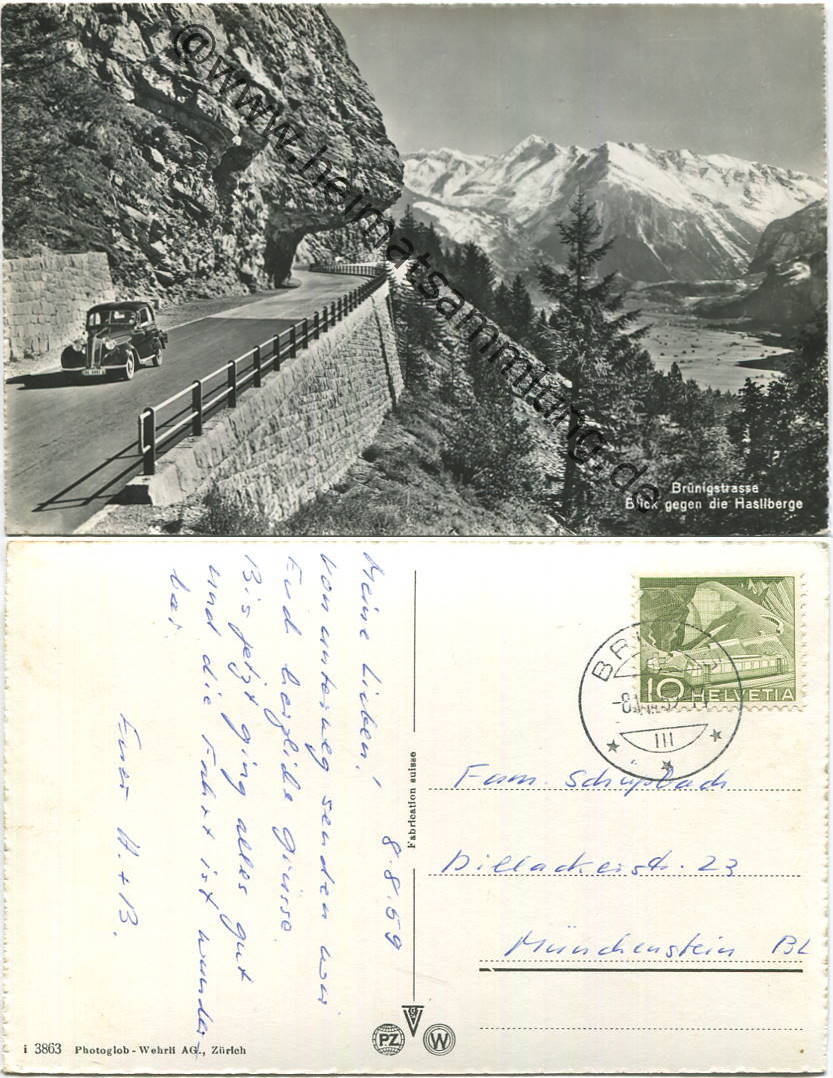 ©www.heimatsammlung.de
Brünigstrasse
Blick gegen die Hasliberge
8.8.59
Meine Lieben!
Von unterweg senden wir
Euch herzliche Grüsse.
Bis jetzt ging alles gut
und die Fahrt ist wunder-
bar
Euer H. + B.
Fabrication suisse
10 HELVETIA
III
Fam. Schüpbach
Dillackerstr. 23
Münchenstein BL
PZ
W
i 3863 Photoglob-Wehrli AG., Zürich